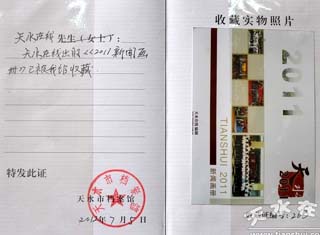 天水在线 先生(女士):
天水在线出版《2011新闻画
册》已被我馆收藏
特发此证
天水市档案馆
天水市档案馆
2012年7月5日
收藏实物照片
2011
TIANSHUI 2011
新闻画册
天水在线